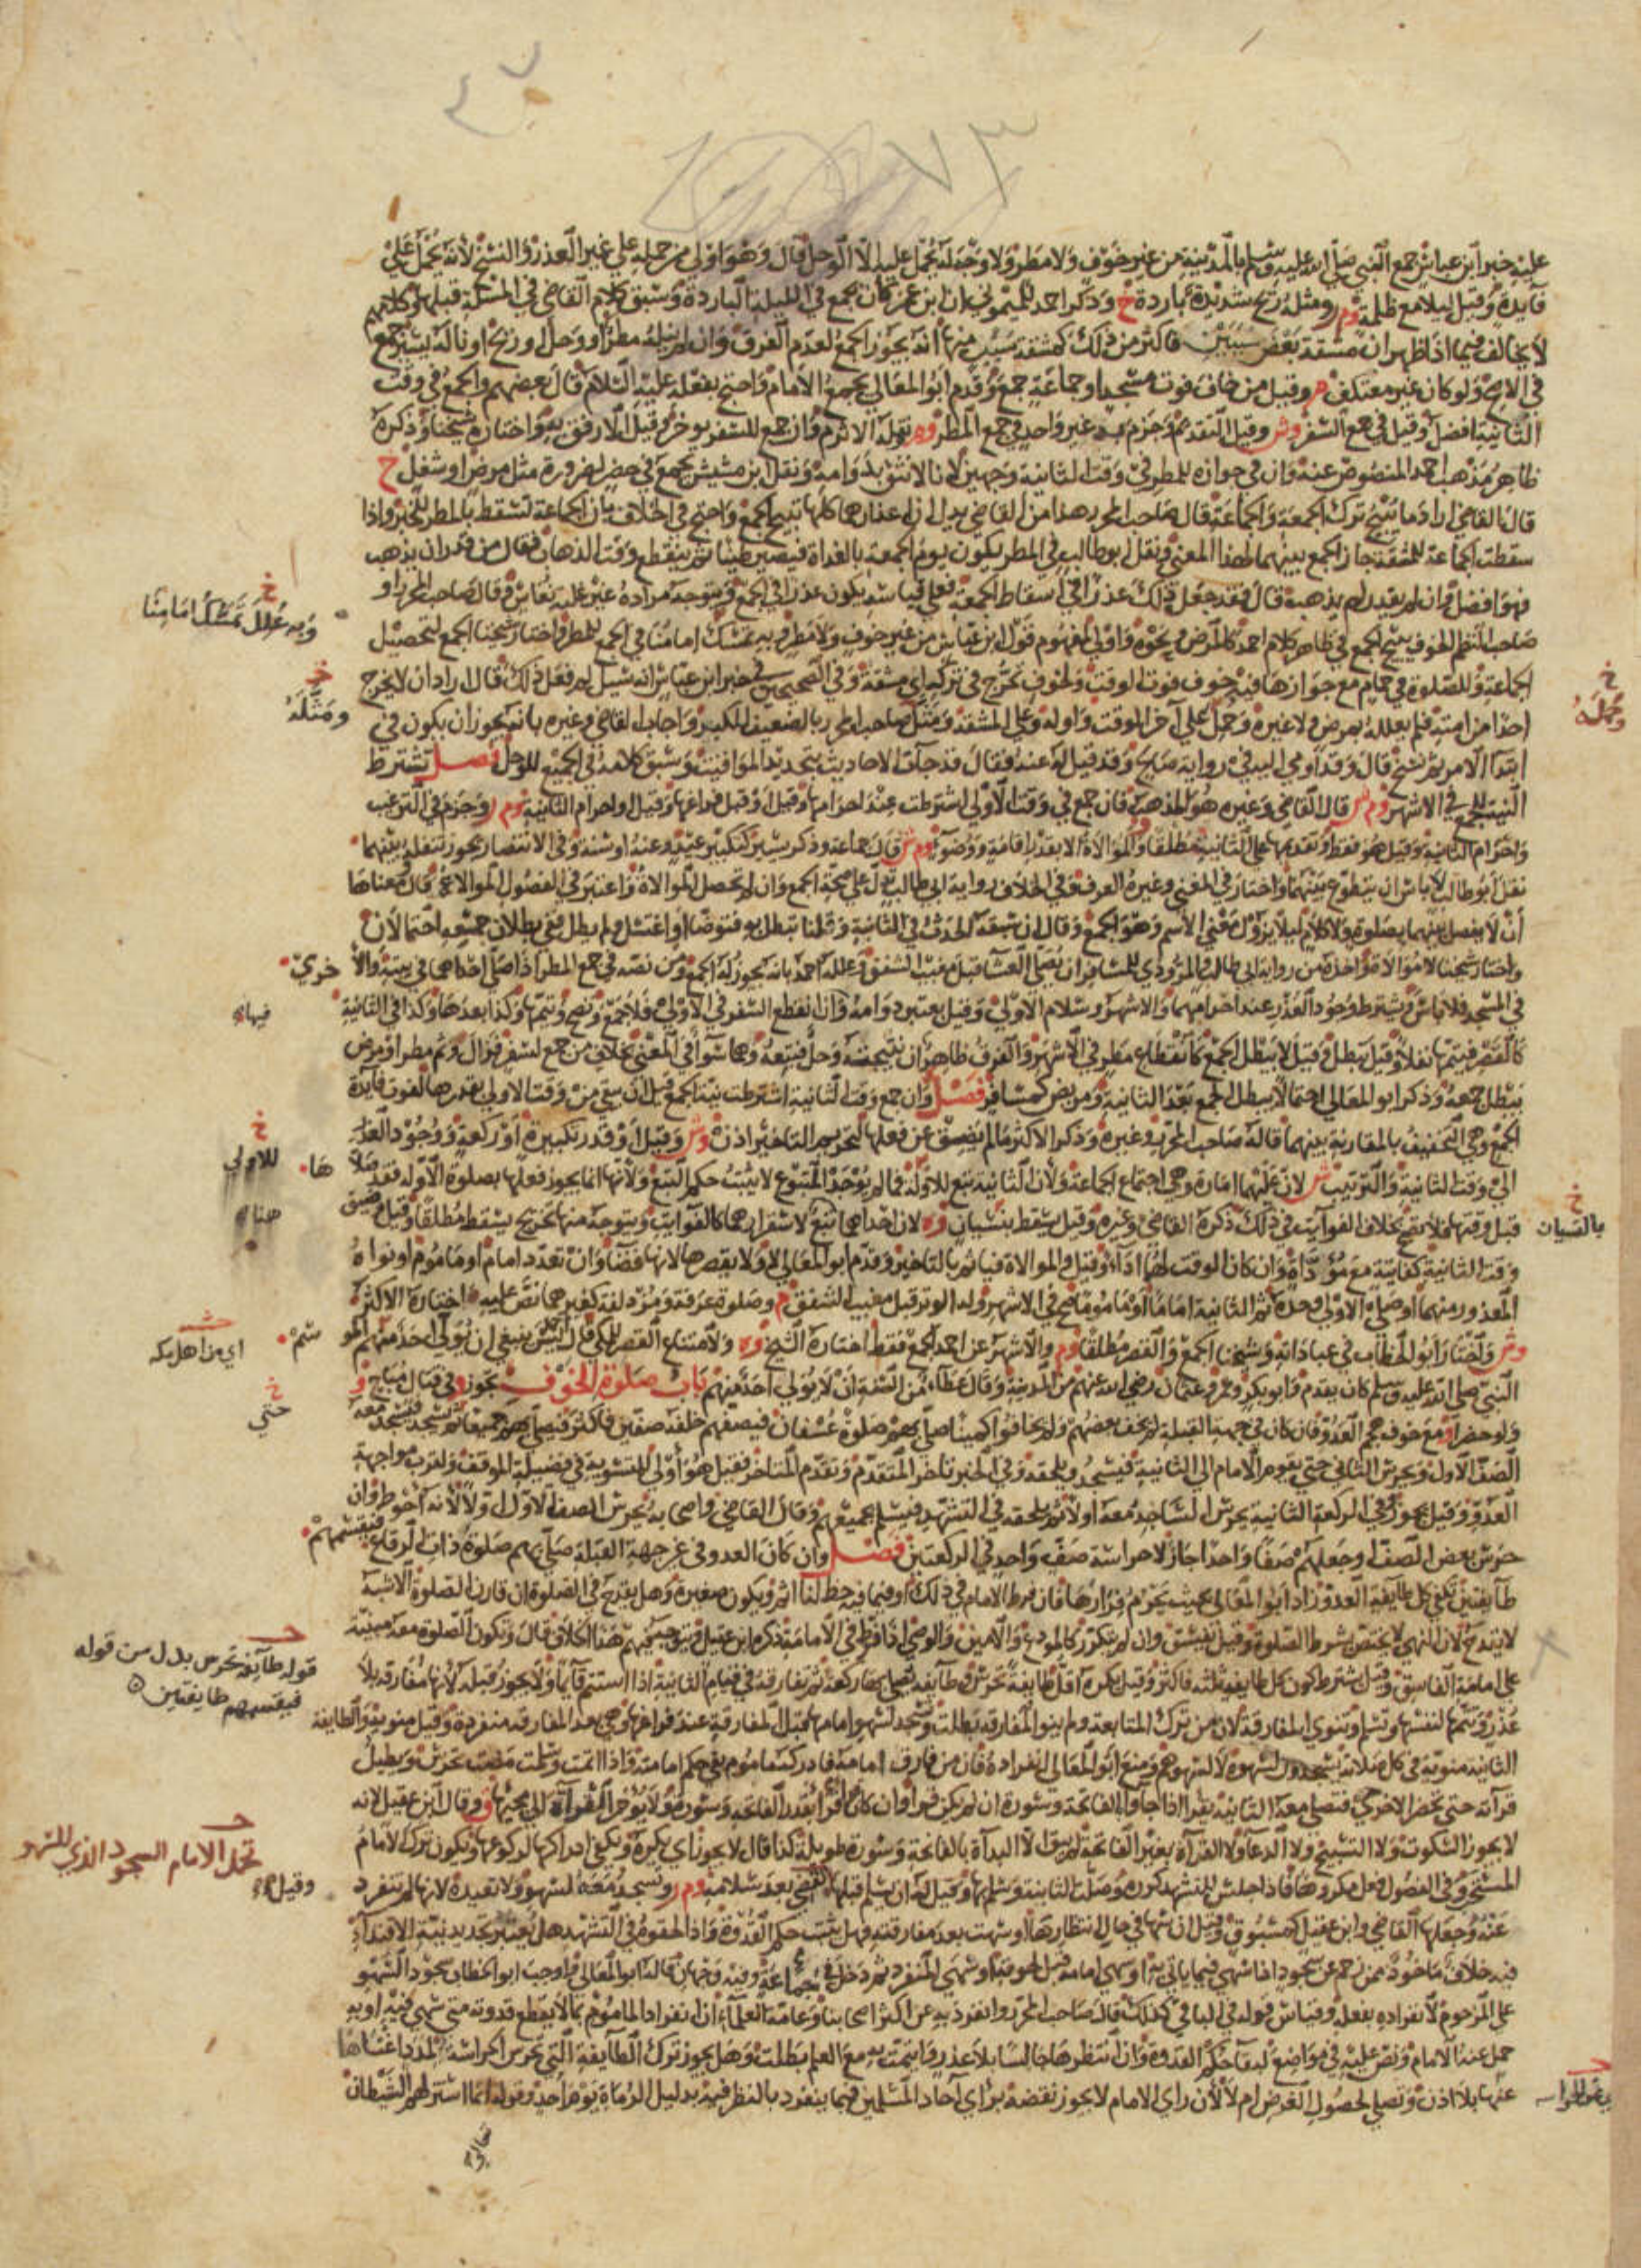 ٧٣
عليه خبر ابن عباس جمع النبي صلى الله عليه وسلم بالمدينة من غير خوف ولا مطر ولا وجه له يحمل عليه الا الوحل قال وهو اولى من حمله على غير العذر والنسخ لانه يحمل على
فايدة وقيل ليلا مع ظلمة وم ر ومثله ريح شديدة باردة خ وذكر احمد للميموني ان ابن عمر كان يجمع في الليلة الباردة وسبق كلام القاضي في المسئلة قبلها
لا يخالف فيما اذا ظهر ان مشقة بعض سببين فاكثر من ذلك كمشقة سبب منها انه يجوز الجمع لعدم الفرق وان لم ينله مطر او وحل او ريح او ناله يسير جمع
في الاصح ولو كان غير معتكف وقيل من خاف فوت مسجد او جماعة جمع وقدم ابو المعالي يجمع الامام واحتج بفعله عليه السلام قال بعضهم والجمع في وقت
الثانية افضل وقيل في جمع السفر وش وقيل التقديم وجزم به غير واحد في جمع المطر وم نقله الاثرم وان جمع للسفر يوخر وقيل الارفق به واختاره شيخنا وذكره
ظاهر مذهب احمد المنصوص عنه وان في جوازه للمطر في وقت الثانية وجهين لانا لا نثق بدوامه ونقل ابن مشيش يجمع في حضر لضرورة مثل مرض او شغل خ
قال القاضي اراد ما يبيح ترك الجمعة والجماعة قال صاحب المحرر هذا من القاضي يدل ان اعذارهما كلها تبيح الجمع واحتج في الخلاف بان الجماعة تسقط بالمطر للخبر واذا
سقطت الجماعة للمشقة جاز الجمع بينهما لهذا المعنى ونقل ابو طالب في المطر يكون يوم الجمعة بالغداة فيصير طينا ثم ينقطع وقت الذهاب فقال من قدر ان يذهب
فهو افضل وان لم يقدر لم يذهب قال فقد جعل ذلك عذرا في اسقاط الجمعة فعلى قياسه يكون عذرا في الجمع ويتوجه مراده غير غلبة نعاس وقال صاحب المحرر او
صاحب النظم الخوف يبيح الجمع في ظاهر كلام احمد كالمرض ونحوه واولى للمفهوم قول ابن عباس من غير خوف ولا مطر وبه تمسك امامنا في الجمع للمطر واختار شيخنا الجمع لتحصيل
الجماعة وللصلوة في حمام مع جوازها فيه خوف فوت الوقت ولخوف تحرج في تركه اي مشقة وفي الصحيحين خبر ابن عباس انه سيل لم فعل ذلك قال اراد ان لا يحرج
احدا من امته فلم يعلله بمرض ولا غيره وحمل على آخر الوقت واوله وعلى المشقة ومثل صاحب المحرر بالضعيف للكبر واجاب القاضي وغيره بانه يجوز ان يكون في
ابتدا الامر ثم نسخ قال وقد اومى اليه في رواية صالح وقد قيل له عنه فقال قد جات الاحاديث بتحديد المواقيت وسبق كلامه في الجميع للوحل فصل تشترط
النية للجمع في الاشهر وم ش قال القاضي وغيره هو المذهب فان جمع في وقت الاولى اشترطت عند احرامها وقيل او قبل فراغها وقيل او احرام الثانية وم ر وجزم في الترغيب
واحرام الثانية وقيل هو فقط وتقديمها على الثانية مطلقا والموالاة الا بقدر اقامة ووضوء وم ش قال جماعة وذكر يسير كتكبير عيد وعنه او سنة وفي الانتصار يجوز تنفله بينهما
نقل ابو طالب لا باس ان يتطوع بينهما واختار في المغني وغيره العرف وفي الخلاف رواية ابي طالب تدل على صحة الجمع وان لم تحصل الموالاة واعتبر في الفصول الموالاة قال معناها
ان لا يفصل بينهما بصلوة ولا كلام ليلا يزول معنى الاسم وهو الجمع وقال ان سبقه الحدث في الثانية وقلنا تبطل به فتوضا او اغتسل ولم يطل ففي بطلان جمعه احتمالان
واختار شيخنا لا موالاة واخذه من رواية ابي طالب والمروذي للمسافر ان يصلي العشا قبل مغيب الشفق وعلله احمد بانه يجوز له الجمع ومن نصه في جمع المطر اذا صلى احداهما في بيته والا خرى
في المسجد فلا باس ويشترط وجود العذر عند احرامهما والاشهر وسلام الاولى وقيل يعتبر دوامه وان انقطع السفر في الاولى فلا جمع وتصح ويتمها وكذا بعدها وكذا في الثانية
كالقصر فيتمها نفلا وقيل تبطل وقيل لا يبطل الجمع كانقطاع مطر في الاشهر والفرق ظاهر ان نتيجته وحل فتتبعه وهما سوآ في المعنى بخلاف من جمع لسفر فزال وثم مطر او مرض
يبطل جمعه وذكر ابو المعالي احتمالا يبطل الجمع بعد الثانية ومريض كمسافر فصل وان جمع وقت الثانية اشترطت نية الجمع قبل ان يبقى من وقت الاولى بقدرها لفوت فايدة
الجمع وهي التخفيف بالمقارنة بينهما قاله صاحب المحرر وغيره وذكر الاكثر ما لم يضيق عن فعلها لتحريم التاخير اذن وش وقيل او قدر تكبيرة او ركعة ووجود العذر
الى وقت الثانية والترتيب ش لان عليهما امارة وهي اجتماع الجماعة ولان الثانية تبع للاوله فما لم يوجد المتبوع لا يثبت حكم التبع ولانها انما يجوز فعلها بصلوة الاوله فقد صلا
قبل وقتها فلا يصح بخلاف الفوايت في ذلك ذكره القاضي وغيره وقيل يسقط بنسيان وه لان احداهما تبع لاستقرارهما كالفوايت ويتوجه منها تخريج يسقط مطلقا وقيل وضيق
وقت الثانية كفايتة مع مؤداة وان كان الوقت لهما اداء وقيل والموالاة فياثم بالتاخير وقدم ابو المعالي لا ولا يقصرها لانها قضآ وان تعدد امام او ماموم او نواه
المعذور منهما او صلى الاولى وحده ثم الثانية اماما او ماموما صح في الاشهر وله الوتر قبل مغيب الشفق م وصلوة عرفة ومزدلفة كغيرهما نص عليه اختاره الاكثر
وش واختار ابو الخطاب في عباداته وشيخنا الجمع والقصر مطلقا وم والاشهر عن احمد الجمع فقط اختاره الشيخ وه ولامتناع القصر للمكي قال احمد ليس ينبغي ان يولى احد منهم الموسم
النبي صلى الله عليه وسلم كان يقدم وابو بكر وعمر وعثمان رضي الله عنهم من المدينة وقال عطآء من السنة ان لا يولى احد منهم باب صلوة الخوف يجوز في قتال مباح
ولو حضرا ومع خوف هجم العدو فان كان في جهة القبلة لم يخف بعضهم ولم يخافوا كمينا صلى بهم صلوة عسفان فيصفهم خلفه صفين فاكثر فيصلي بهم جميعا ثم يسجد فيسجد معه
الصف الاول ويحرس الثاني حتى يقوم الامام الى الثانية فيسجد ويلحقه وفي الخبر تاخر المتقدم وتقدم المتاخر فقيل هو اولى للتسوية في فضيلة الموقف ولقرب مواجهة
العدو وقيل يجوز وفي الركعة الثانية يحرس الساجد معه اولا ثم يلحقه في التشهد فيسلم بجميعهم وقال القاضي واصحابه يحرس الصف الاول اولا لانه احوط وان
حرس بعض الصف او جعلهم صفا واحدا جاز لا حراسة صف واحد في الركعتين فصل وان كان العدو في غير جهة القبلة صلى بهم صلوة ذات الرقاع فيقسمهم
طآيفتين تكفي كل طآيفة العدو زاد ابو المعالي بحيث يحرم فرارها فان فرط الامام في ذلك او فيما فيه حظ لنا اثم ويكون صغيرة وهل يقدح في الصلوة ان قارن الصلوة الاشبه
لا يقدح لان النهي لا يختص بشرط الصلوة وقيل يفسق وان لم يتكرر كالمودع والامين والوصي اذا فرط في الامانة ذكره ابن عقيل قال وتكون الصلوة معه مبنية
على امامة الفاسق وقيل يشترط كون كل طايفة ثلثة فاكثر وقيل يكره اقل طايفة تحرس وطآيفة يصلي بها ركعة ثم تفارقه في قيام الثانية اذا استتم قآيما ولا يجوز قبله لانها مفارقة بلا
عذر وتتمها لنفسها وتسلم وتنوي المفارقة لان من ترك المتابعة ولم ينو المفارقة بطلت وتسجد لسهو امامها قبل المفارقة عند فراغها وهي بعد المفارقة منفردة وقيل منوية والطايفة
الثانية منوية في كل صلاته يسجدون لسهوه لا لسهوهم ومنع ابو المعالي انفراده فان من فارق امامه فادركه ماموم بقي حكم امامته واذا اتمت وسلمت مضت تحرس ويطيل
قرآته حتى تحضر الاخرى فتصلي معه الثانية يقرا اذا جاوا بالفاتحة وسورة ان لم يكن قرا وان كان قرا بقدر الفاتحة وسورة ولا يؤخر القرآة الى مجيئها وقال ابن عقيل لانه
لا يجوز السكوت ولا التسبيح ولا الدعآ ولا القرآة بغير الفاتحة لم يبق الا البدآة بالفاتحة وسورة طويلة كذا قال لا يجوز اي يكره ويكفي ادراكها لركوعها ويكون ترك الامام
المستحب وفي الفصول فعل مكروها فاذا جلس للتشهد كروه وصلت الثانية وسلم بها وقيل له ان يسلم قبلها وقيل تقضي بعد سلامه وم ر وتسجد معه لسهوه ولا تعيده لانها لم تنفرد
عنه وجعلها القاضي وابن عقيل كمسبوق وقيل ان سها في حال انتظارها او سهت بعد مفارقته فهل يثبت حكم القدوة واذا لحقوه في التشهد هل يعتبر تجديد نية الاقتدآء
فيه خلاف ماخوذ ممن زحم عن سجود اذا سهى فيما ياتي به او سهى امامه قبل لحوقه او سهى المنفرد ثم دخل في جماعة وفيه وجهان قاله ابو المعالي واوجب ابو الخطاب سجود السهو
على المزحوم لانفراده بفعله وقياس قوله في الباقي كذلك قال صاحب المحرر وانفرد به عن اكثر اصحابنا وعامة العلمآء ان انفراد الماموم بما لا يقطع قدوته متى سهى فيه او به
حمل عنه الامام ونص عليه في مواضع لبقآ حكم القدوة وان انتظرها جالسا بلا عذر وايتمت به مع العلم بطلت وهل يجوز ترك الطآيفة التي تحرس الحراسة لمدد اغناها
عنها بلا اذن وتصلي لحصول الغرض ام لا لان راي الامام لا يجوز نقضه براي آحاد المسلمين فيما ينفرد بالنظر فيه بدليل الرماة يوم احد وقوله انما استزلهم الشيطان
خ
وبه علل تمسك امامنا
خ
ومثله
خ
وحمله
فيهاء
خ
للاولى
ها
خ
بالنسيان
اي من اهل مكه
خ
حتى
قوله طآيفة تحرس بدل من قوله
فيقسمهم طايفتين
تحمل الامام السجود الذي للسهو
وقيل